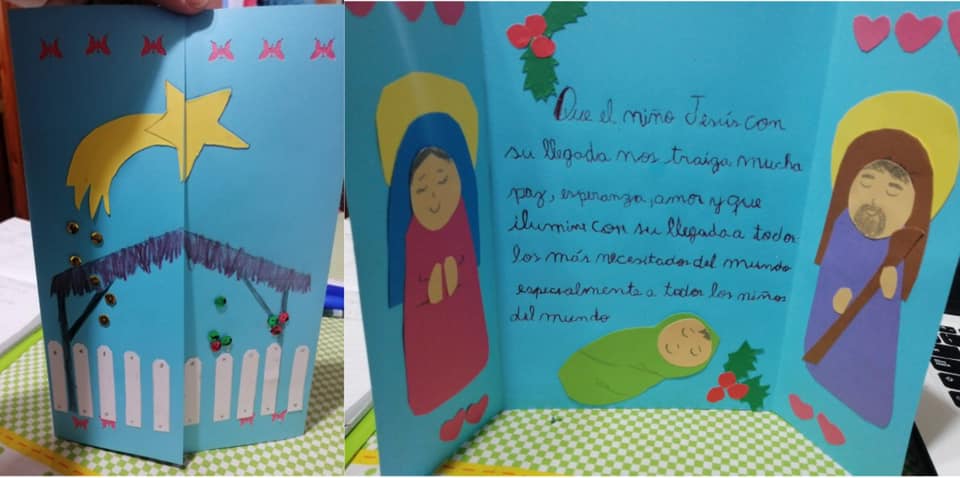 Que el niño Jesús con
su llegada nos traiga mucha
paz, esperanza, amor y que
ilumine con su llegada a todos
los más necesitados del mundo
especialmente a todos los niños
del mundo